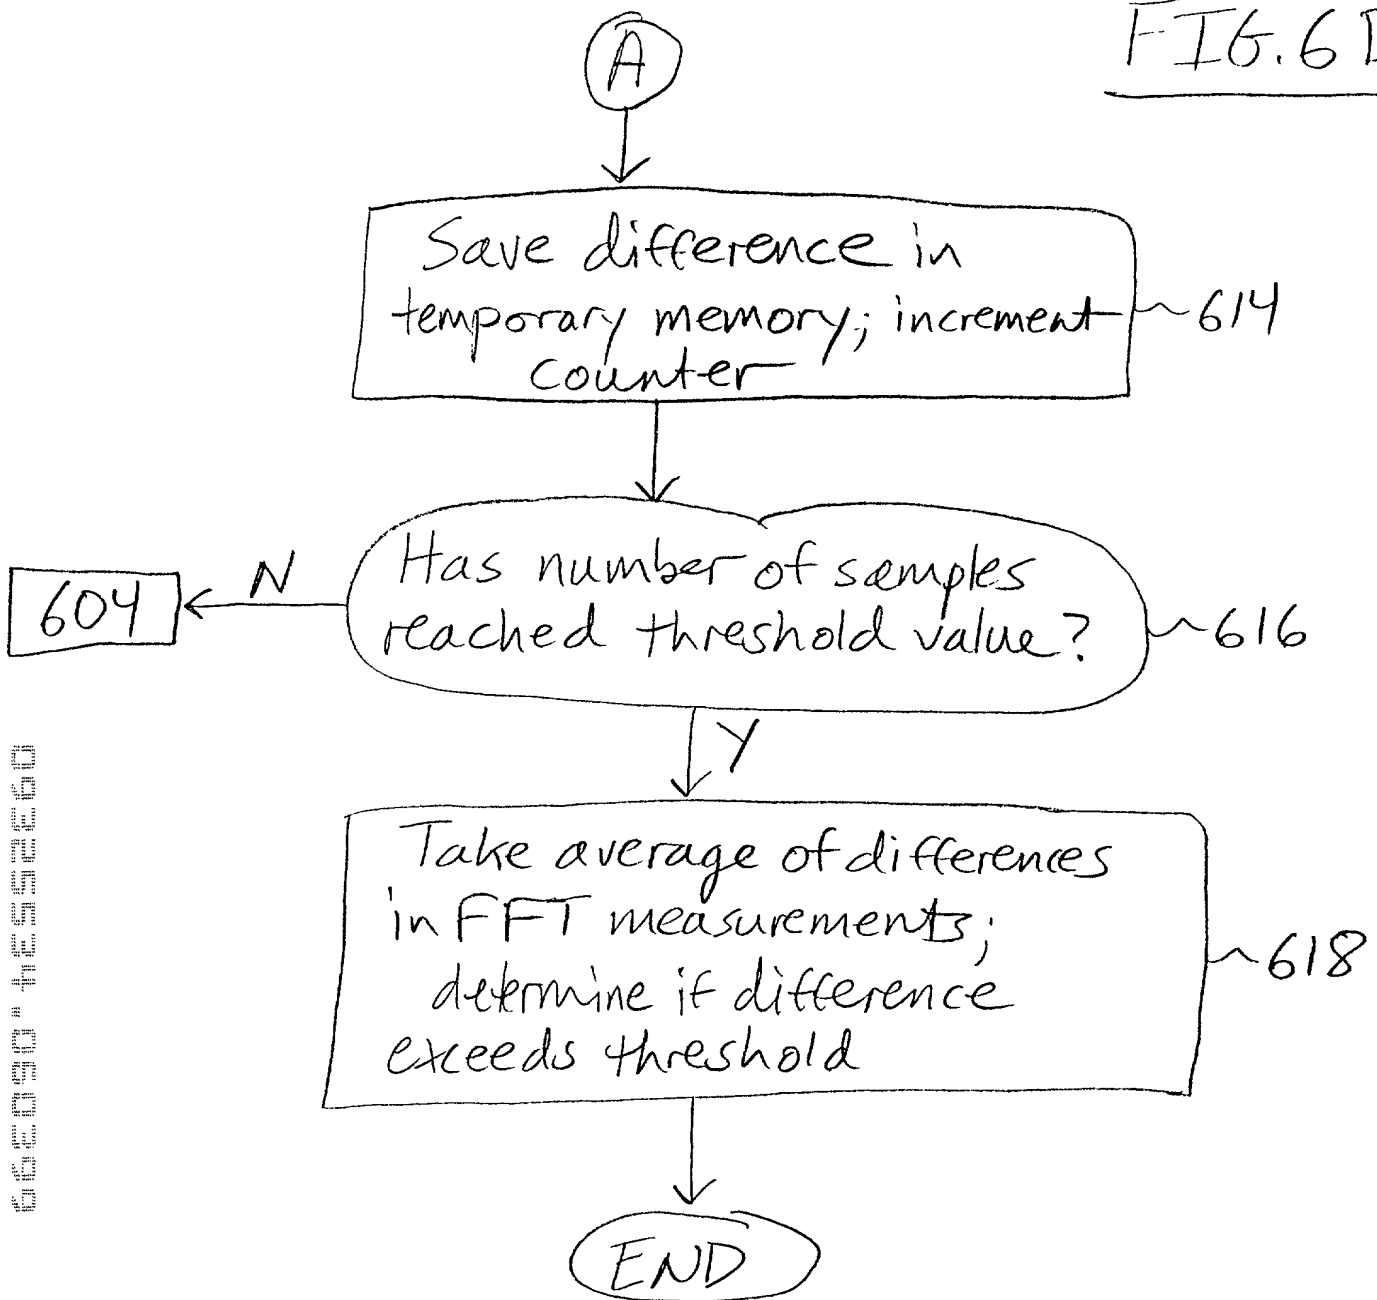 FIG. 6
A
Save difference in
temporary memory; increment
counter
614
Has number of samples
reached threshold value?
616
N
604
Y
Take average of differences
in FFT measurements;
determine if difference
exceeds threshold
618
END